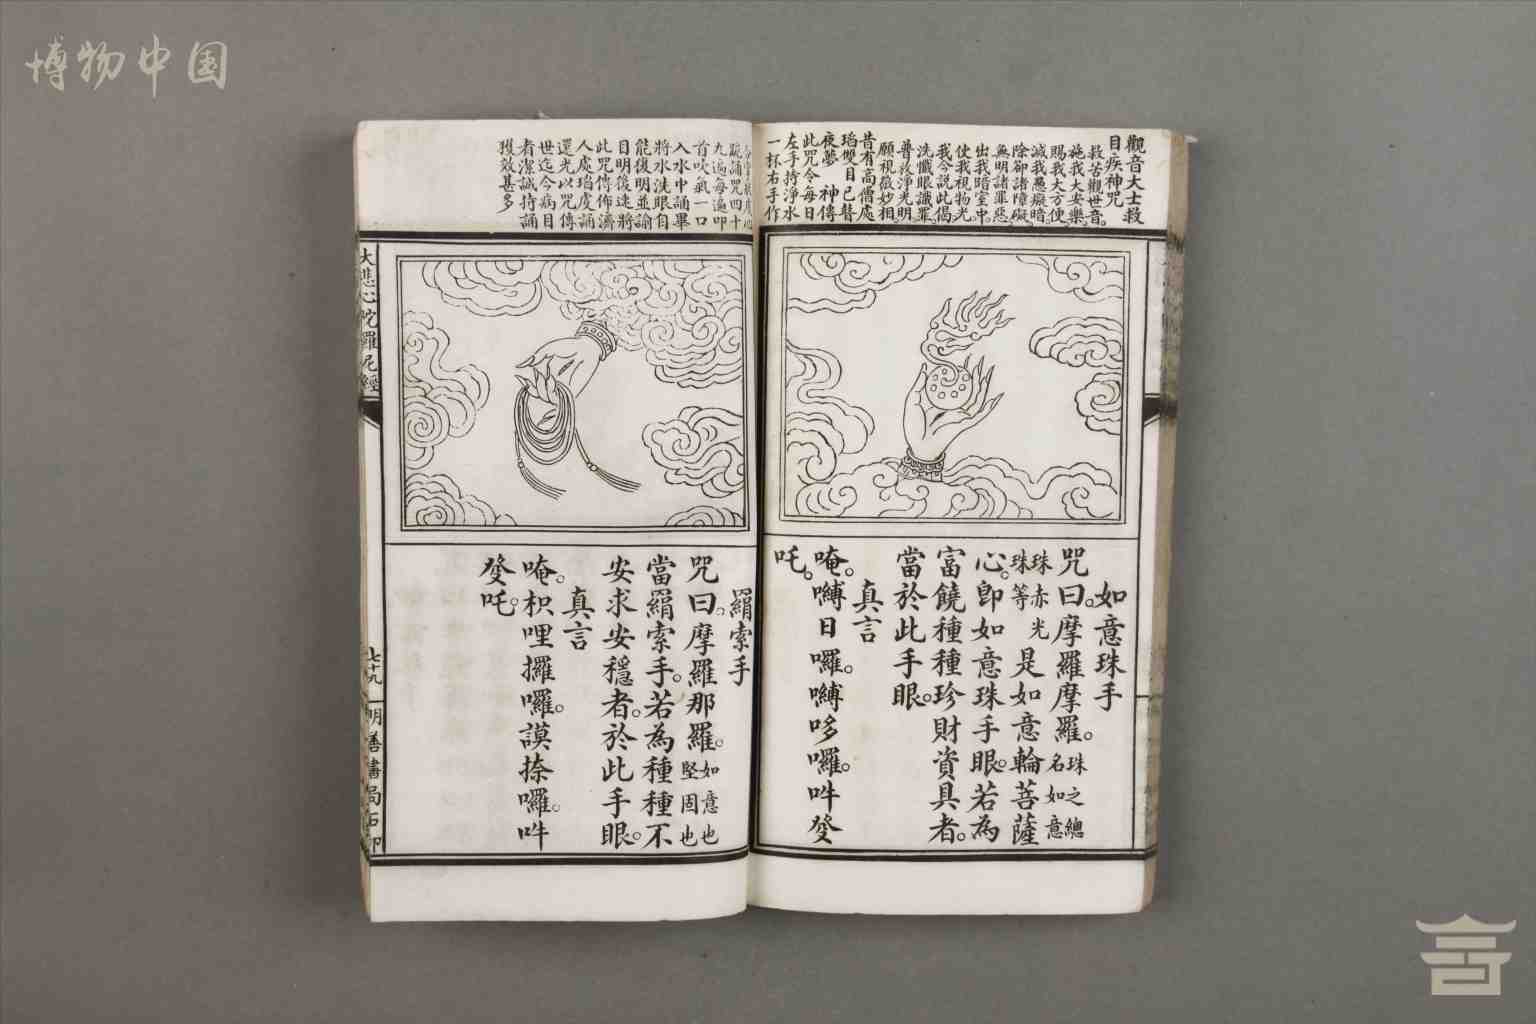 博物中国
觀音大士救
目疾神咒
救苦觀世音。
施我大安樂。
賜我大方便
滅我愚癡暗
除卻諸障礙。
無明諸罪惡
出我暗室中。
使我視物光
我今說此偈
洗懺眼識罪
普放淨光明
願視微妙相。
昔有高僧處
瑫雙目已瞽
夜夢　神傳
此咒令每日
左手持淨水
一杯右手作
如意珠手
咒曰。摩羅摩羅。珠之總名如意
珠赤光珠等是如意輪菩薩
心。即如意珠手眼。若為
富饒種種珍財資具者。
當於此手眼。
真言
唵。嚩日囉。嚩哆囉。吽癹
吒。
疏誦咒四十
九遍每遍叩
首吹氣一口
入水中誦畢
將水洗眼自
能復明並諭
目明後速將
此咒傳佈濟
人處瑫虔誦
還光以咒傳
世迄今病目
者潔誠持誦
獲效甚多
羂索手
咒曰。摩羅那羅。如意也堅固也
當羂索手。若為種種不
安求安穩者。於此手眼。
真言
唵。枳哩攞囉。謨捺囉。吽
癹吒。
大悲心陀羅尼經
七十九
明善書局石印